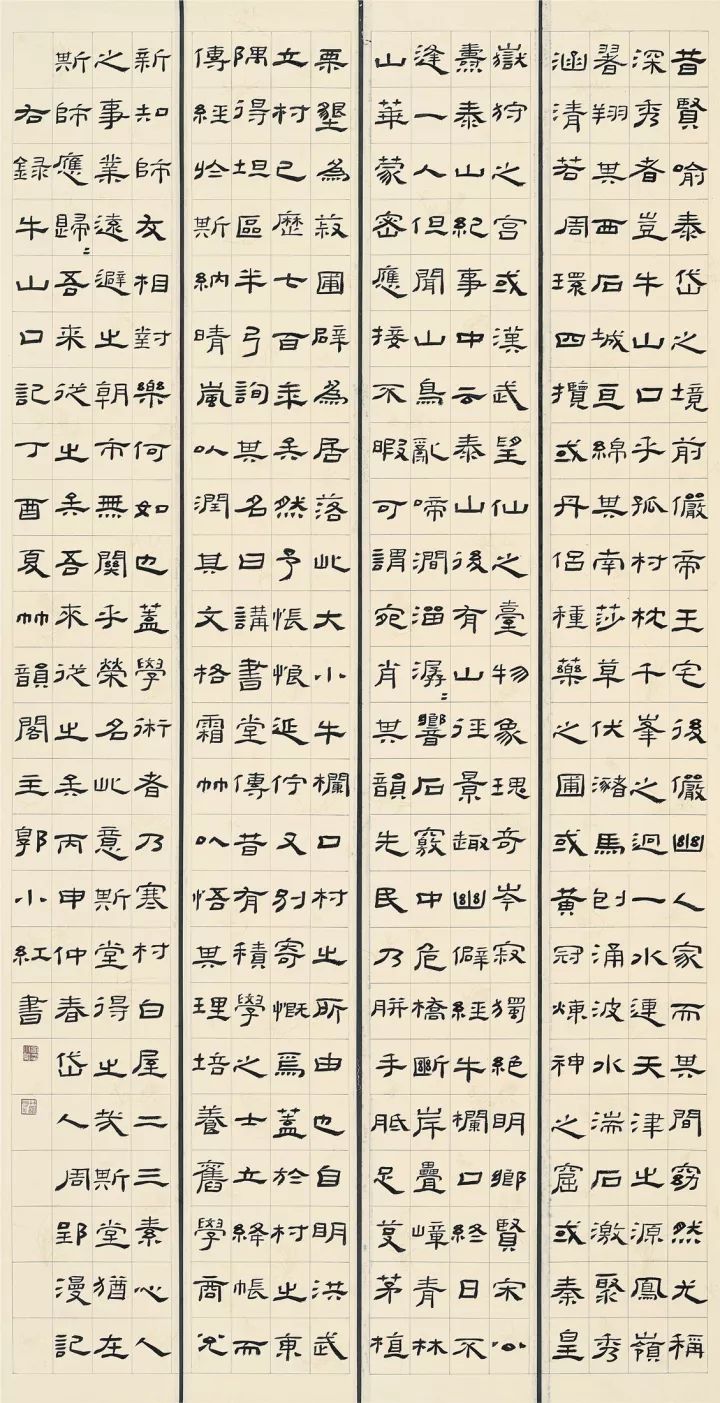 昔賢喻泰岱之境前儼帝王宅後儼幽人家而其間窈然尤稱
深秀者豈牛山口乎孤村枕千峯之迥一水連天津之源鳳嶺
翥翔其西石城亘綿其南莎草伏瀦馬刨涌波水湍石激聚秀
涵清若周環四攬或丹侶種藥之圃或黃冠煉神之窟或秦皇
嶽狩之宮或漢武望仙之臺物象瑰奇岑寂獨絕明鄉賢宋公
燾泰山紀事中云泰山後有山徑景趣幽僻經牛欄口終日不
逢一人但聞山鳥亂啼澗溜潺〻響石竅中危橋斷岸疊嶂青林
山華蒙密應接不暇可謂宛肖其韻先民乃胼手胝足芟茅植
栗墾為菽圃辟為居落此大小牛欄口村之所由也自明洪武
立村已歷七百年矣然予悵恨延佇又別寄慨焉蓋於村之東
隅得坦區半弓詢其名曰講書堂傳昔有積學之士立絳帳而
傳經於斯納晴嵐以潤其文格霜竹以悟其理培養舊學商兌
新知師友相對樂何如也蓋學術者乃寒村白屋二三素心人
之事業遠避之朝市無關乎榮名此意斯堂得之哉斯堂猶在
斯師應歸〻吾來從之矣吾來從之矣丙申仲春岱人周郢漫記
右錄牛山口記丁酉夏竹韻閣主郭小紅書